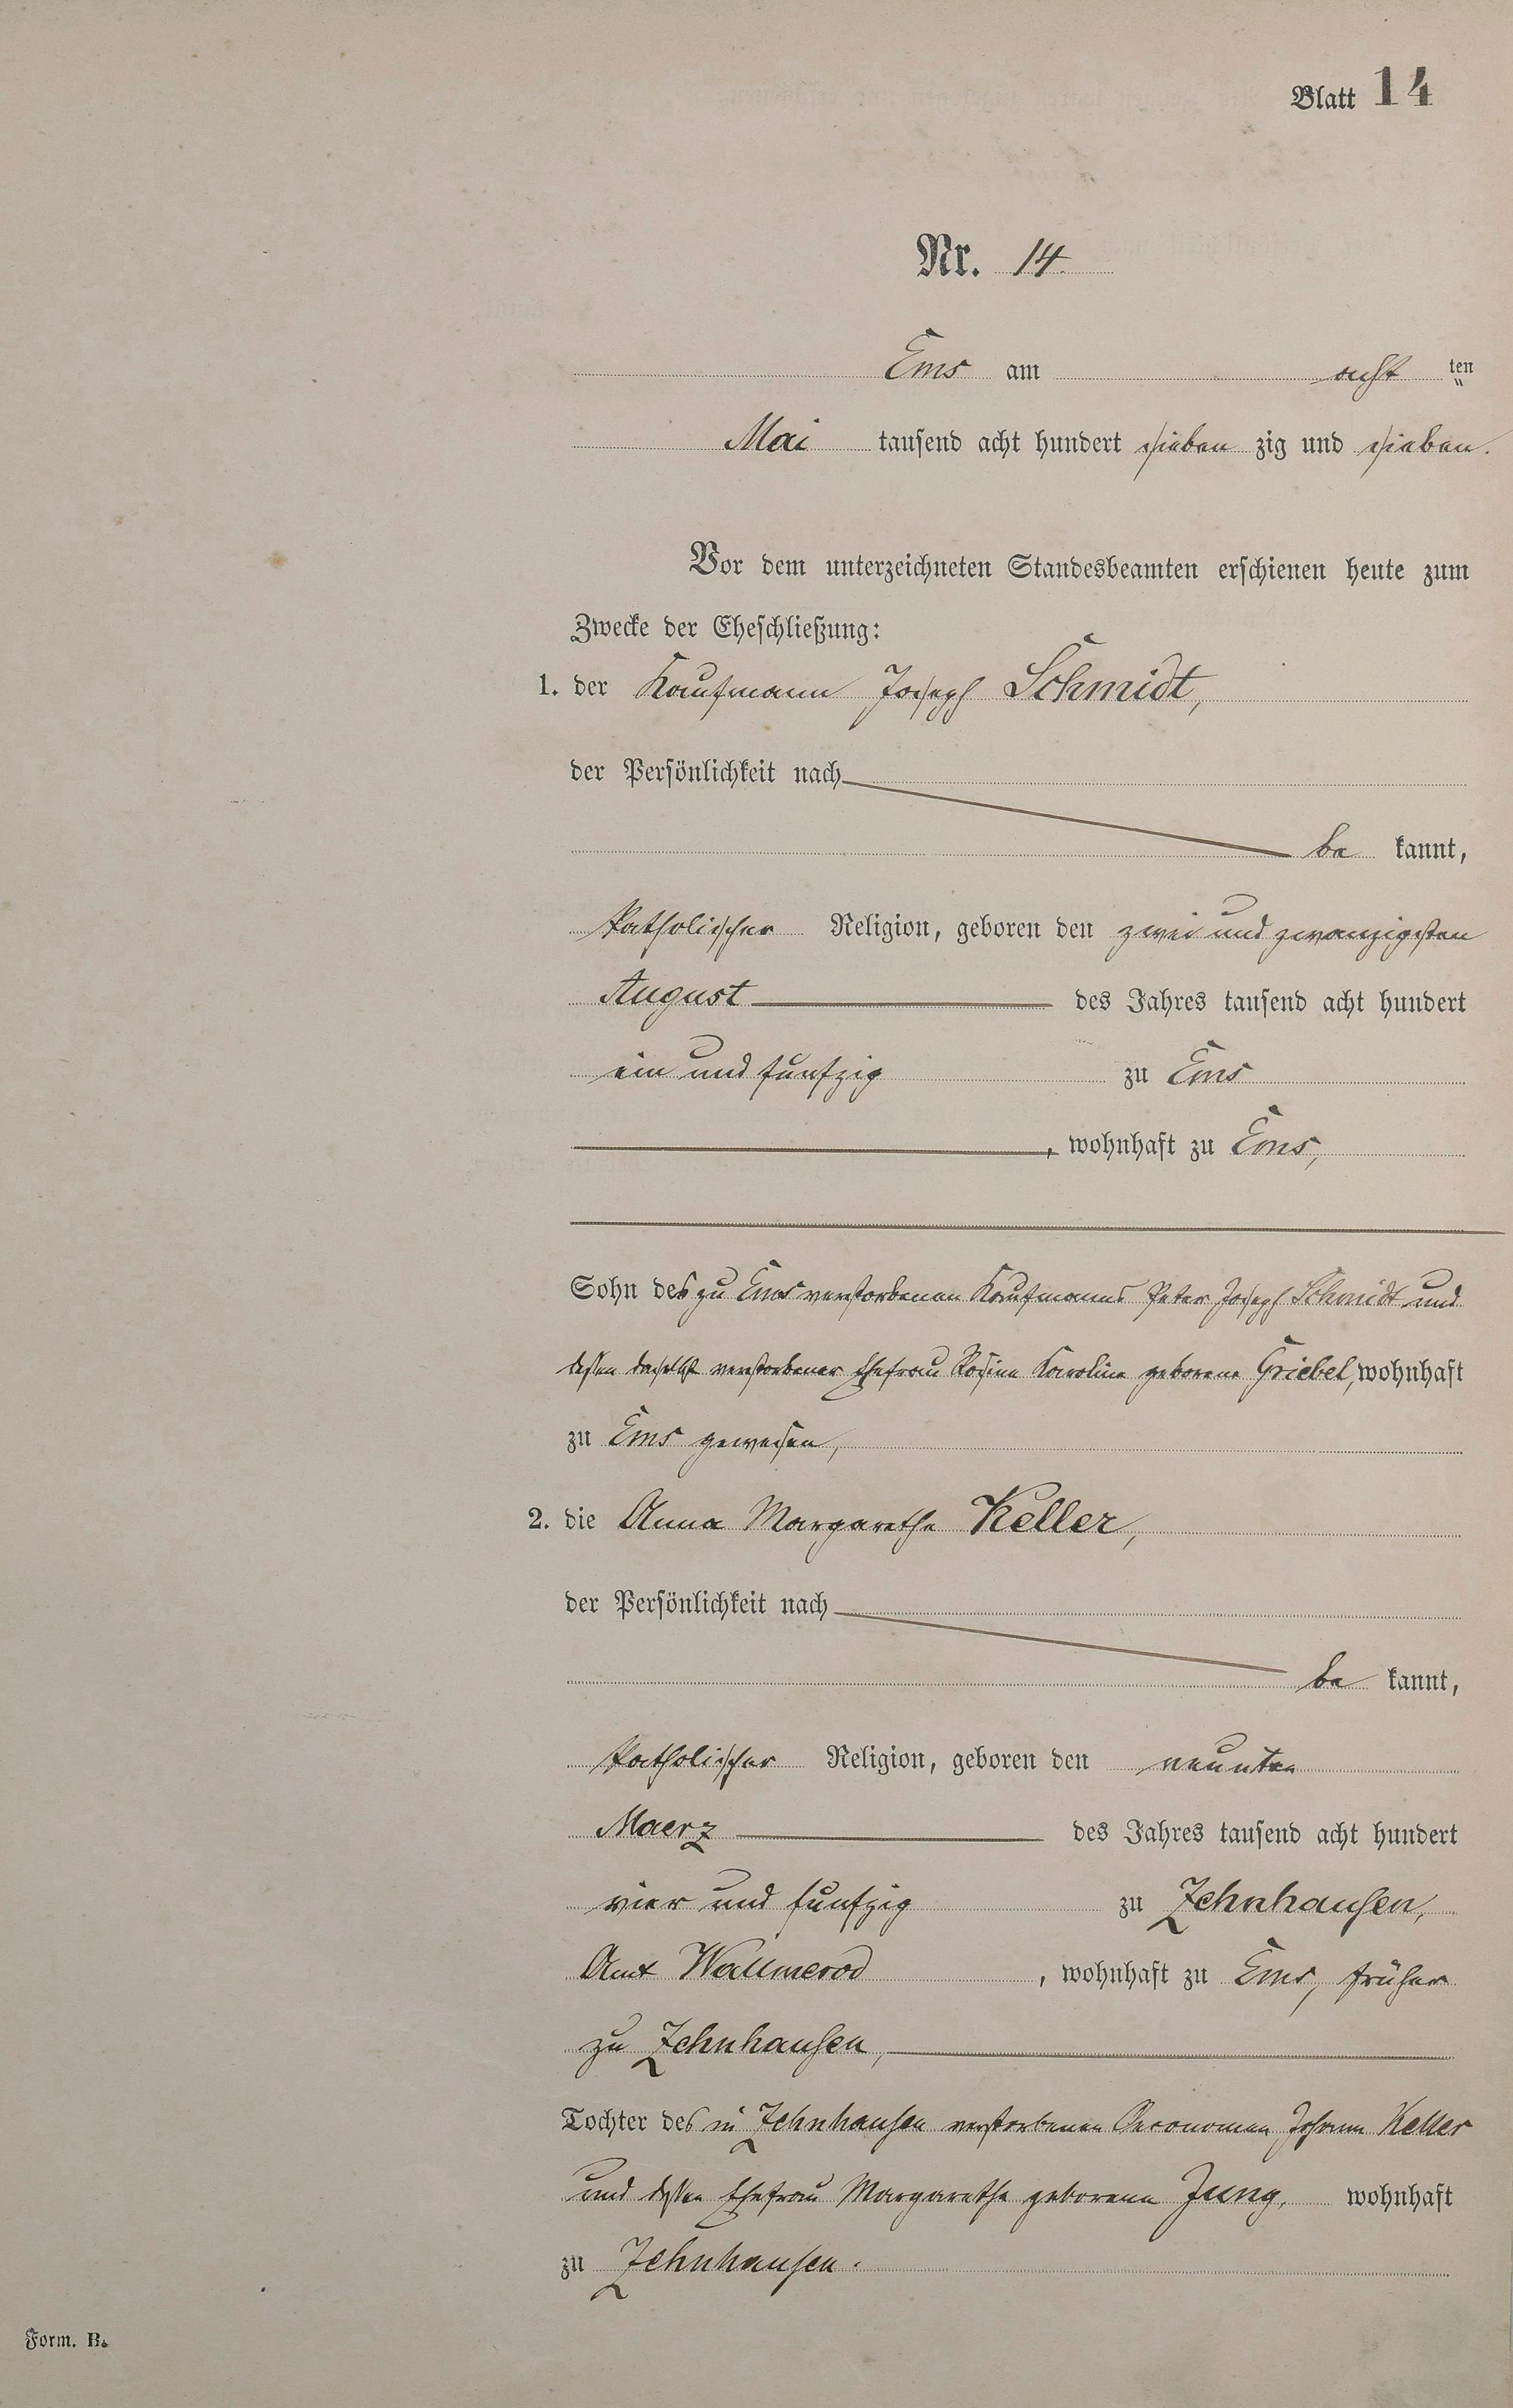 Blatt 14
Nr. 14.
Ems am acht ten
Mai tausend acht hundert sieben zig und sieben.
Vor dem unterzeichneten Standesbeamten erschienen heute zum
Zwecke der Eheschließung:
1. der Kaufmann Joseph Schmidt,
der Persönlichkeit nach
be kannt,
katholischer Religion, geboren den zwei und zwanzigsten
August des Jahres tausend acht hundert
ein und funfzig zu Ems
, wohnhaft zu Ems,
Sohn des zu Ems verstorbenen Kaufmanns Peter Joseph Schmidt und
dessen daselbst verstorbener Ehefrau Rosina Karolina geborene Griebel, wohnhaft
zu Ems gewesen,
2. die Anna Margarethe Keller,
der Persönlichkeit nach
be kannt,
katholischer Religion, geboren den neunten
Maerz des Jahres tausend acht hundert
vier und funfzig zu Zehnhausen,
Amt Wallmerod , wohnhaft zu Ems, früher
zu Zehnhausen,
Tochter des in Zehnhausen verstorbenen Oeconomen Johann Keller
und dessen Ehefrau Margarethe geborenen Jung, wohnhaft
zu Zehnhausen.
Form. B.